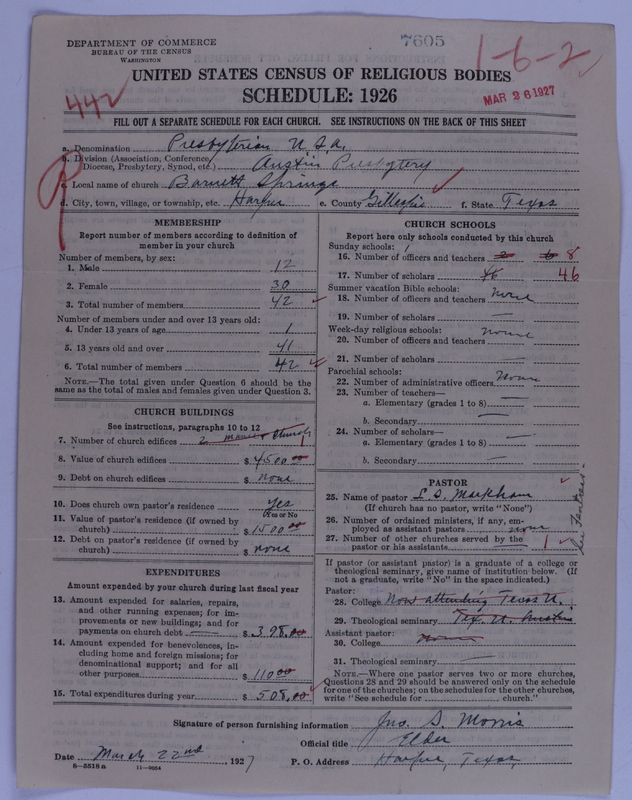 DEPARTMENT OF COMMERCE
BUREAU OF THE CENSUS
WASHINGTON
7605
1-6-2
UNITED STATES CENSUS OF RELIGIOUS BODIES
SCHEDULE: 1926
MAR 26 1927
442
FILL OUT A SEPARATE SCHEDULE FOR EACH CHURCH. SEE INSTRUCTIONS ON THE BACK OF THIS SHEET
a. Denomination Presbyterian U.S.A.
b. Division (Association, Conference, Diocese, Presbytery, Synod, etc.) Austin Presbytery
c. Local name of church Barnett Springs
d. City, town, village, or township, etc. Harper e. County Gillespie f. State Texas
R
MEMBERSHIP
Report number of members according to definition of member in your church
Number of members, by sex:
1. Male 12
2. Female 30
3. Total number of members 42
Number of members under and over 13 years old:
4. Under 13 years of age 1
5. 13 years old and over 41
6. Total number of members 42
NOTE.—The total given under Question 6 should be the same as the total of males and females given under Question 3.
CHURCH BUILDINGS
See instructions, paragraphs 10 to 12
7. Number of church edifices 2 manse & Church 1
8. Value of church edifices $4500 00
9. Debt on church edifices $ none
10. Does church own pastor's residence Yes
(Yes or No)
11. Value of pastor's residence (if owned by church) $1500 00
12. Debt on pastor's residence (if owned by church) $ none
EXPENDITURES
Amount expended by your church during last fiscal year
13. Amount expended for salaries, repairs, and other running expenses; for improvements or new buildings; and for payments on church debt $398.00
14. Amount expended for benevolences, including home and foreign missions; for denominational support; and for all other purposes $110 00
15. Total expenditures during year $508.00
CHURCH SCHOOLS
Report here only schools conducted by this church
Sunday schools: 1
16. Number of officers and teachers 2 6 8
17. Number of scholars 46 46
Summer vacation Bible schools:
18. Number of officers and teachers None
19. Number of scholars —
Week-day religious schools:
20. Number of officers and teachers None
21. Number of scholars —
Parochial schools:
22. Number of administrative officers None
23. Number of teachers—
a. Elementary (grades 1 to 8) —
b. Secondary —
24. Number of scholars—
a. Elementary (grades 1 to 8) —
b. Secondary —
PASTOR
25. Name of pastor L. D. Markham
(If church has no pastor, write "None")
26. Number of ordained ministers, if any, employed as assistant pastors none
27. Number of other churches served by the pastor or his assistants 1
If pastor (or assistant pastor) is a graduate of a college or theological seminary, give name of institution below. (If not a graduate, write "No" in the space indicated.)
Pastor:
28. College Now attending Texas U.
29. Theological seminary Tex. U. Austin
Assistant pastor:
30. College None
31. Theological seminary —
NOTE.—Where one pastor serves two or more churches, Questions 28 and 29 should be answered only on the schedule for one of the churches; on the schedules for the other churches, write "See schedule for church."
Signature of person furnishing information Jno. S. Morris
Official title Elder
Date March 22nd, 1927 P. O. Address Harper, Texas,
8-5518a 11-9954